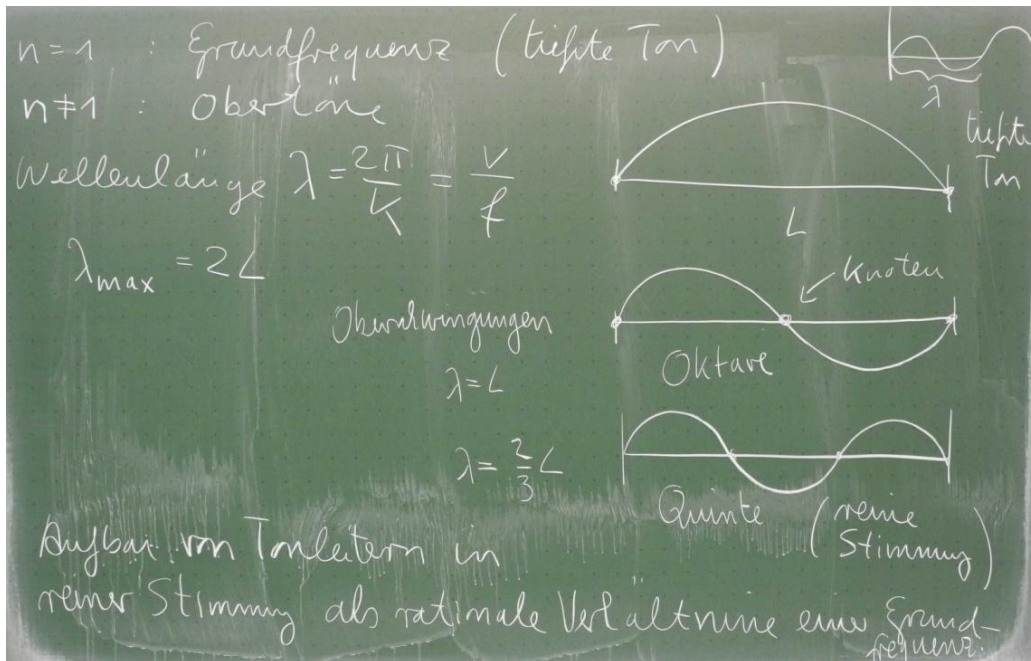 n=1 : Grundfrequenz (tiefste Ton)
n≠1 : Obertöne
Wellenlänge λ = 2π/k = v/f
λmax = 2L
λ
tiefste
Ton
L
Knoten
Oberschwingungen
Oktave
λ = L
λ = 2/3 L
Quinte (reine
Stimmung)
Aufbau von Tonleitern in
reiner Stimmung als rationale Verhältnisse einer Grund-
frequenz.